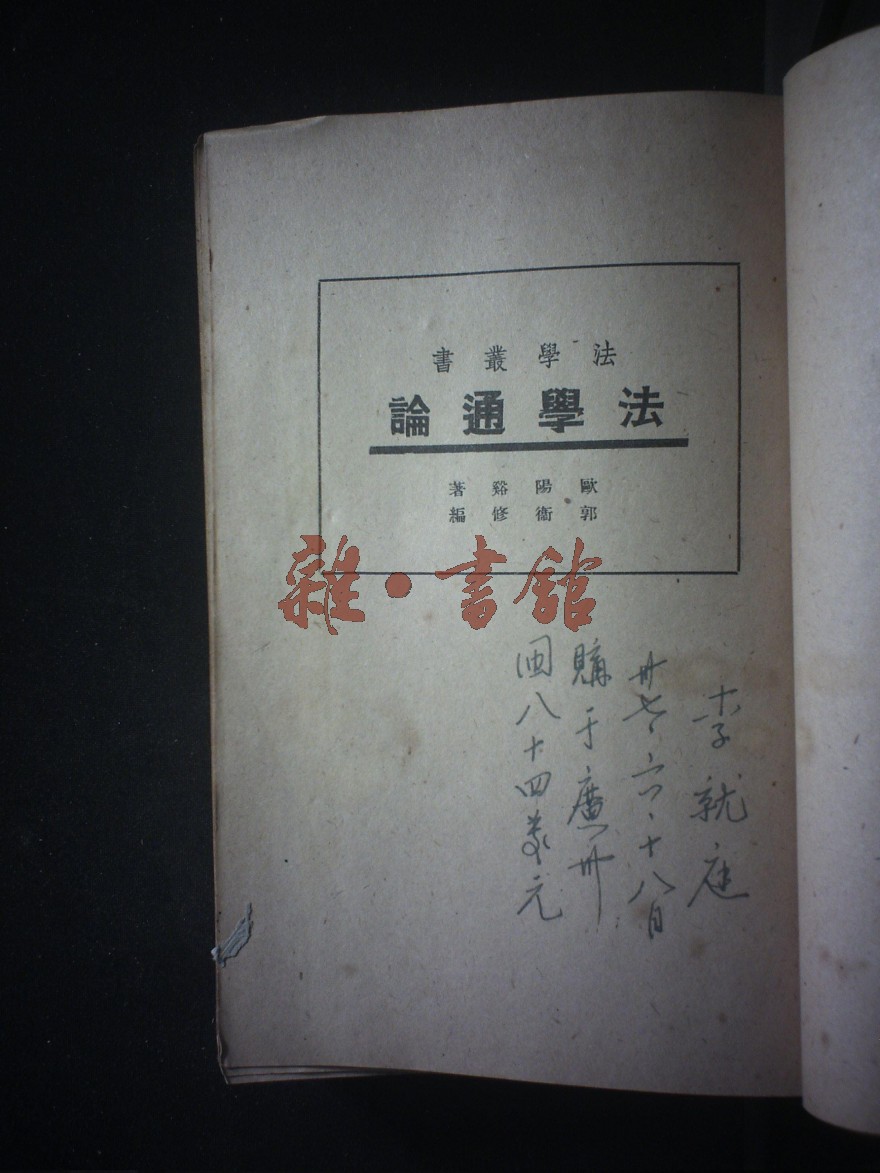 法學叢書
法學通論
歐陽谿著
郭衞修編
雜·書館
李就
卅七、六、十八日
購于廣州
八十四萬元